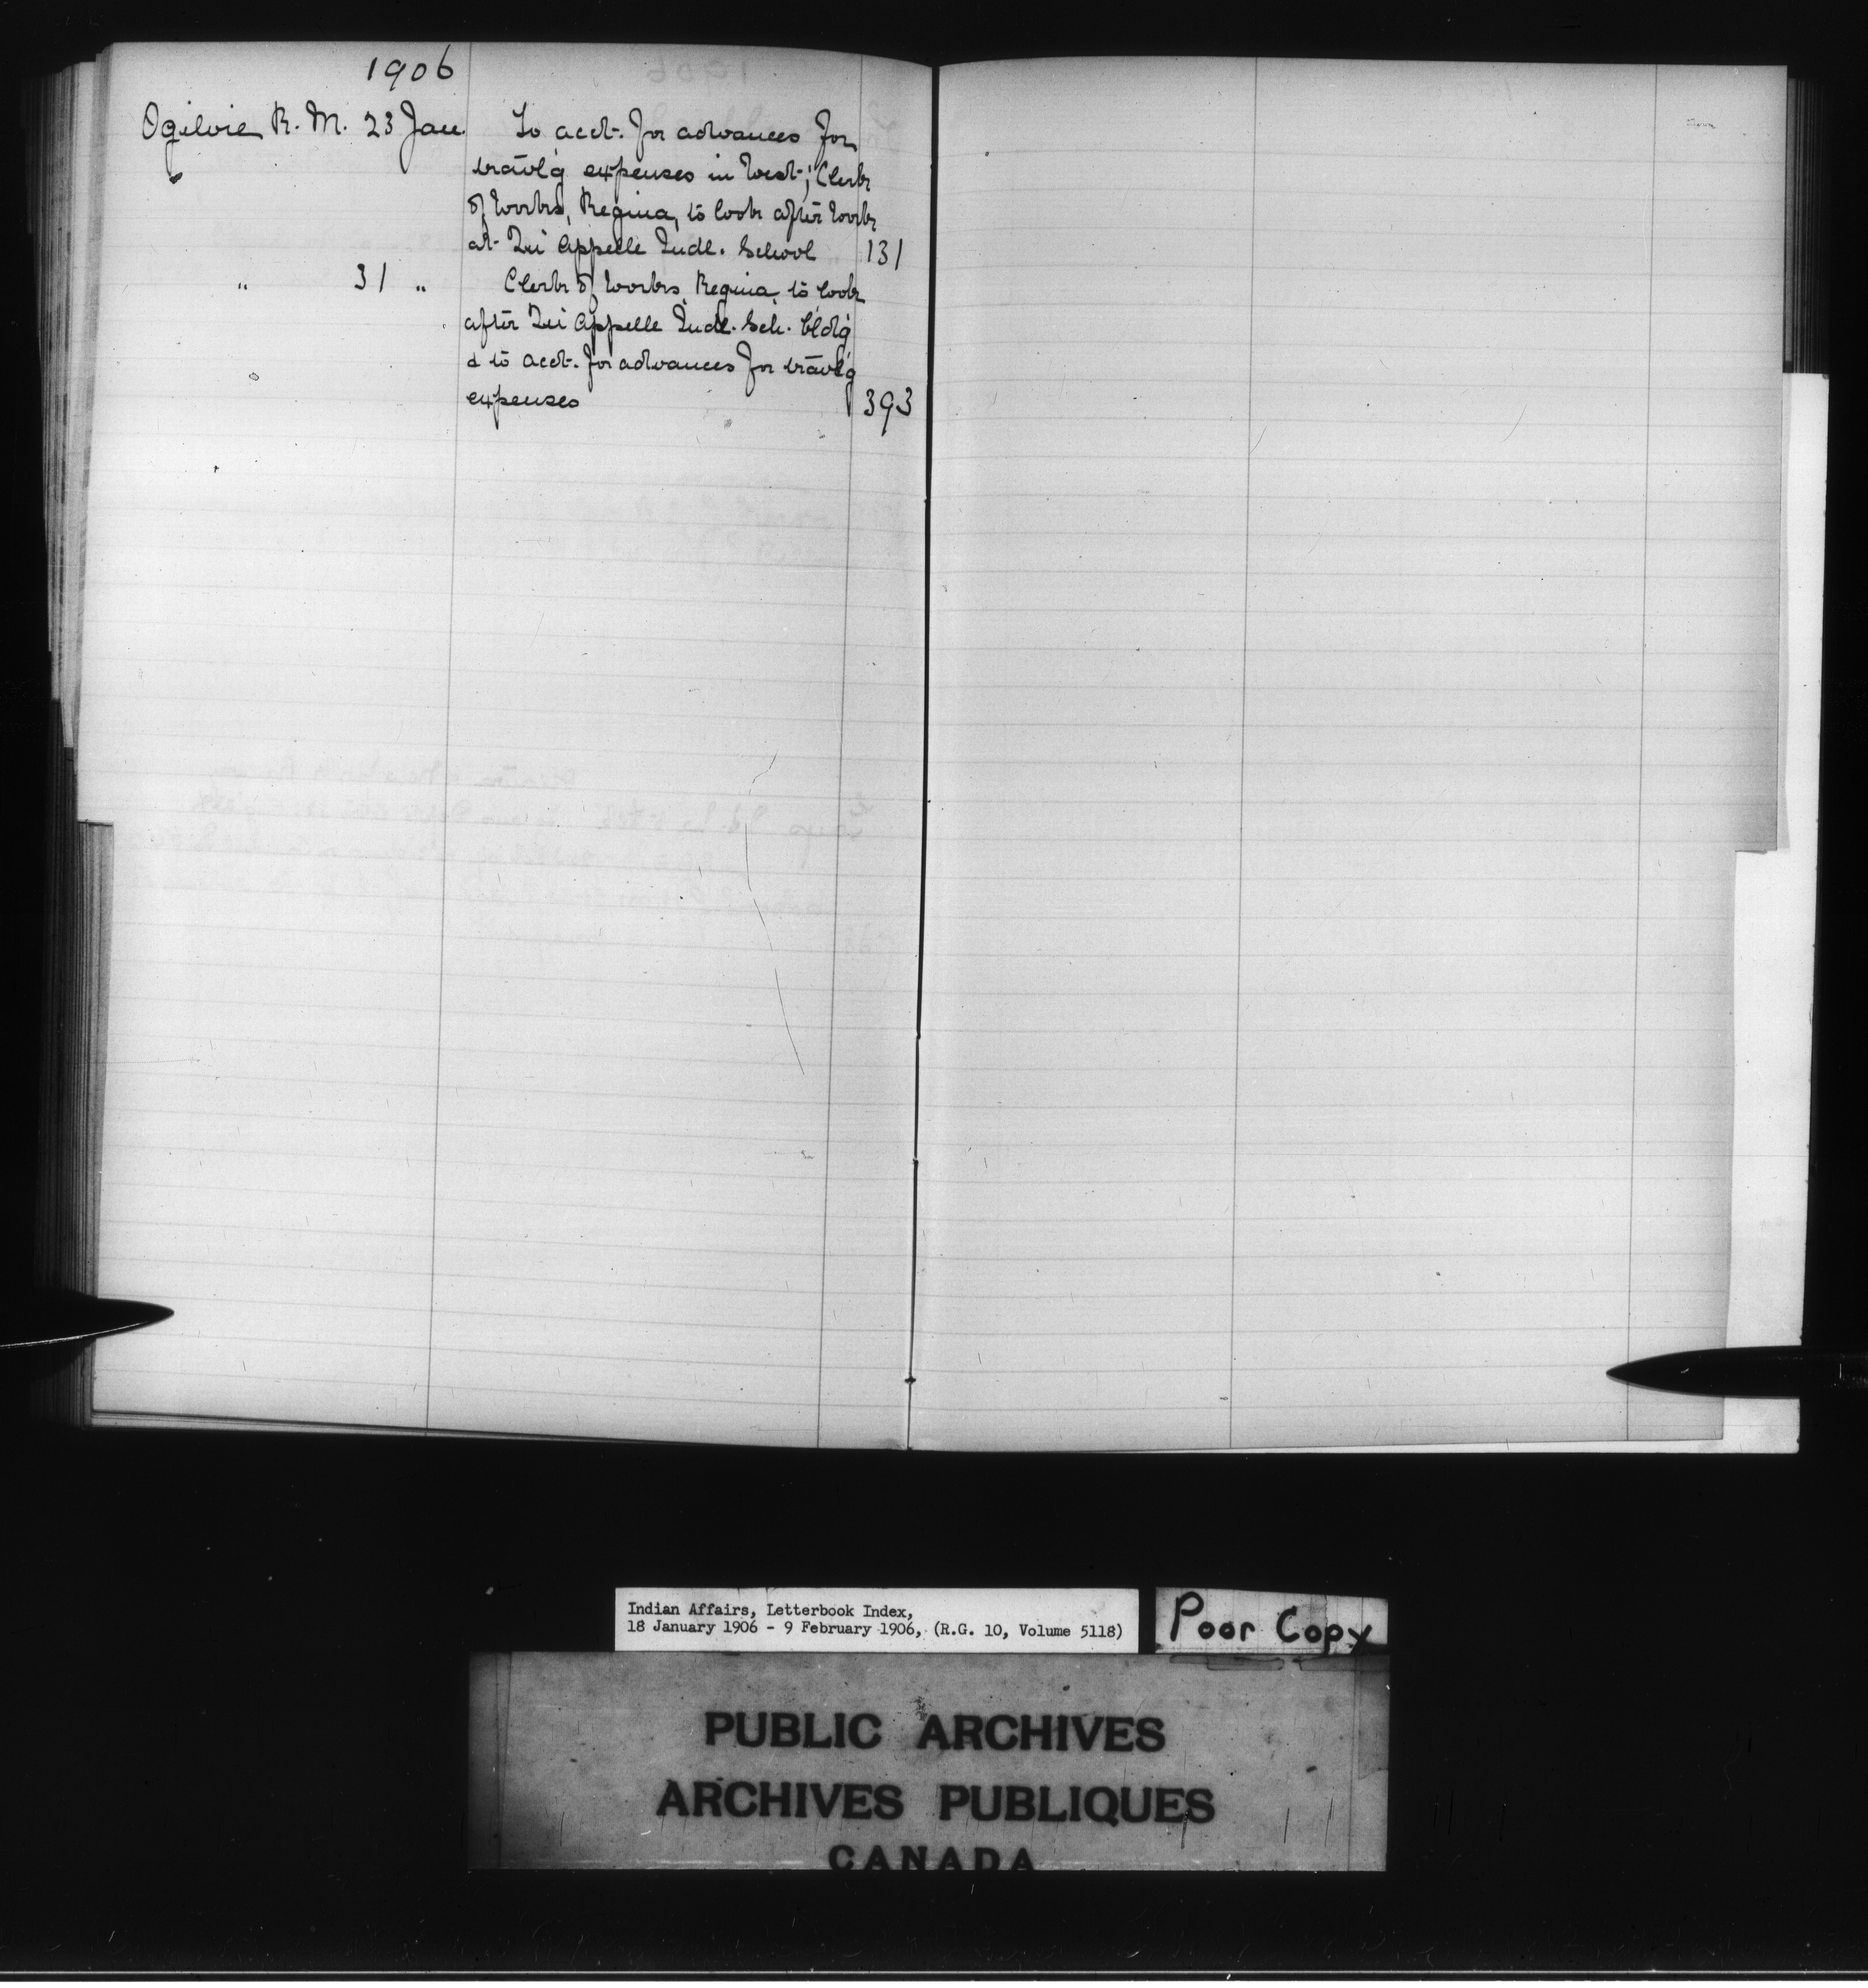 1906
Ogilvie R. M. 23 Jan. To acct. for advances for
travl'g expenses in West; Clerk
of Works, Regina, to look after work
at Qu'Appelle Indl. School 131
" 31 " Clerk of Works, Regina, to look
after Qu'Appelle Indl. Sch. bld'g
& to acct. for advances for travl'g
expenses 393
Indian Affairs, Letterbook Index,
18 January 1906 - 9 February 1906, (R.G. 10, Volume 5118)
Poor Copy
PUBLIC ARCHIVES
ARCHIVES PUBLIQUES
CANADA